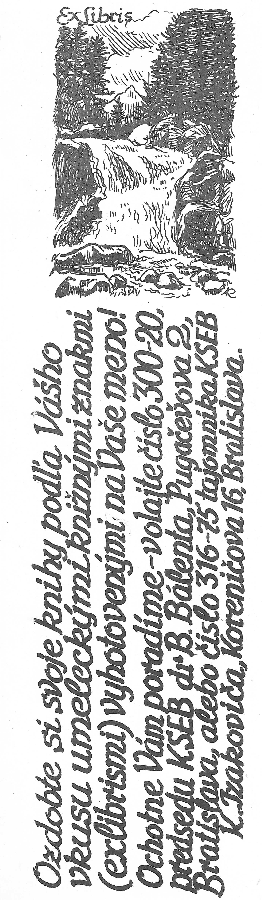 Ex libris
Ozdobte si svoje knihy podľa Vášho
vkusu umeleckými knižnými znakmi
(exlibrismi) vyhotovenými na Vaše meno!
Ochotne Vám poradíme-volajte číslo 300-20,
predsedu KSEB dr B. Bálenta, Pugačevova 2,
Bratislava, alebo číslo 316-75 tajomníka KSEB
K. Izakoviča, Koreničova 16, Bratislava.